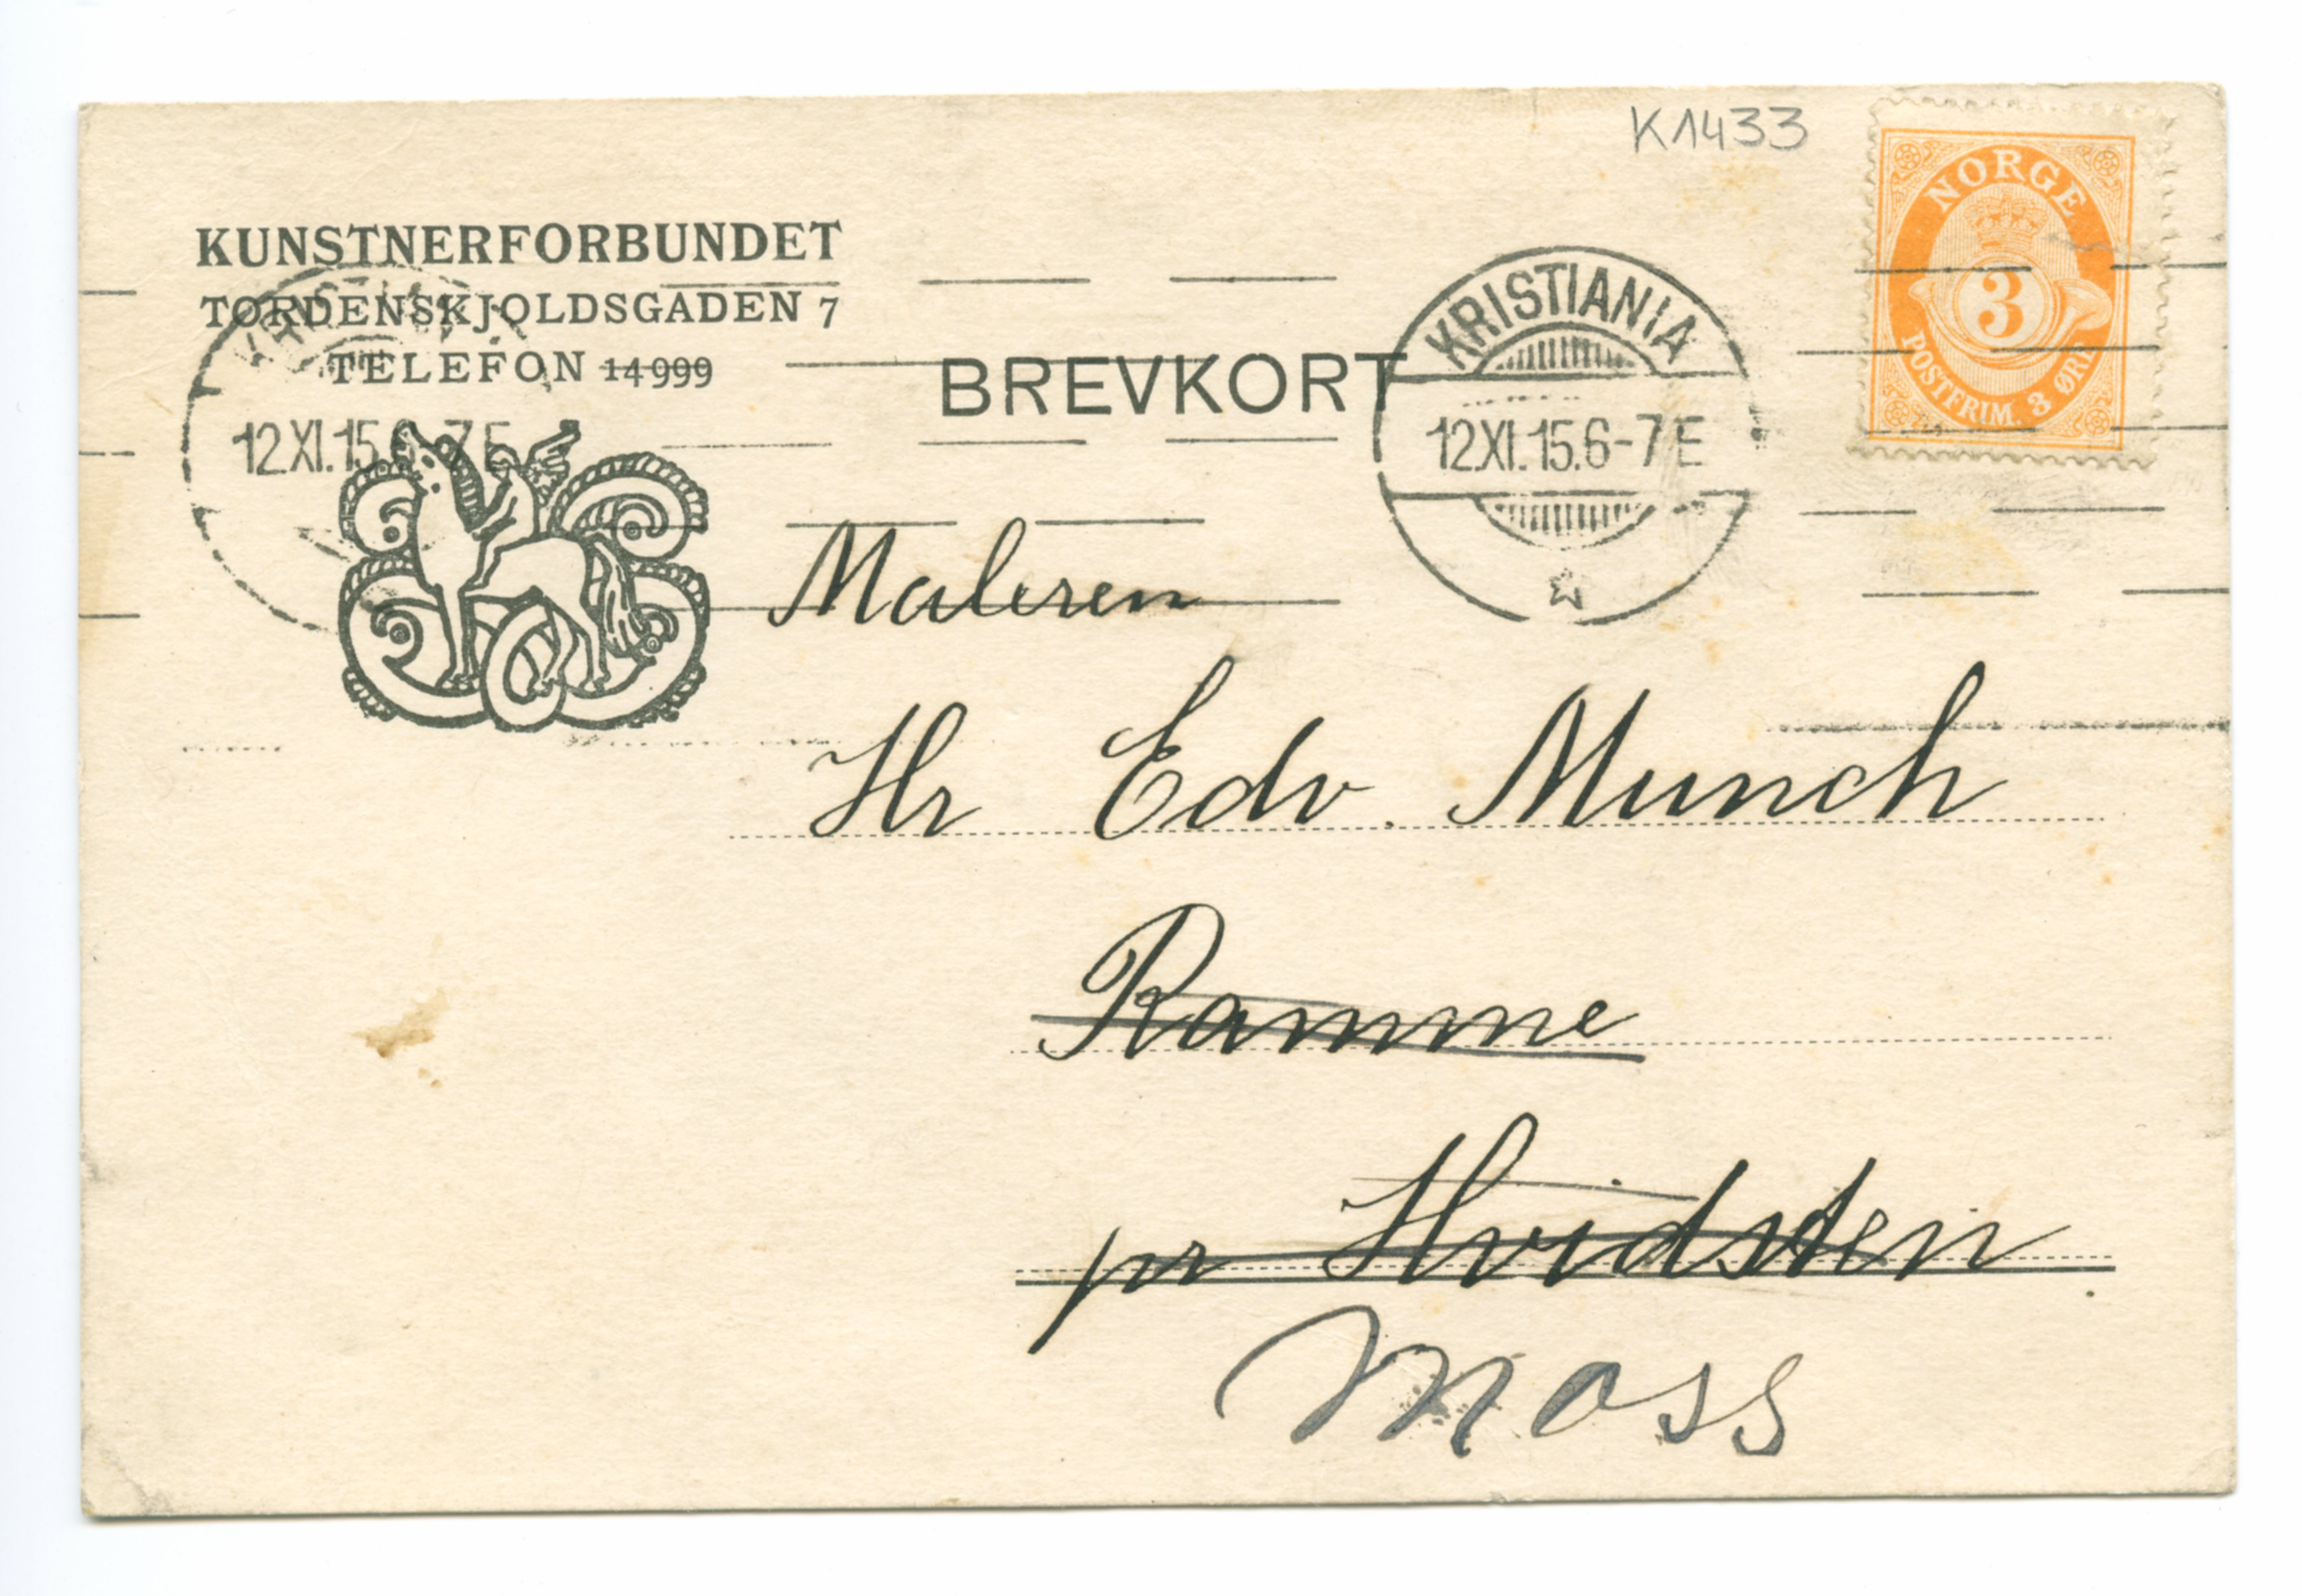 K1433
KUNSTNERFORBUNDET
TORDENSKJOLDSGADEN 7
TELEFON 14999
BREVKORT
KRISTIANIA
12.XI.15.6-7E
12.XI.15.6-7E
NORGE
3
POSTFRIM. 3 ØRE
Maleren
Hr Edv. Munch
Ramme
pr Hvidsten
Moss